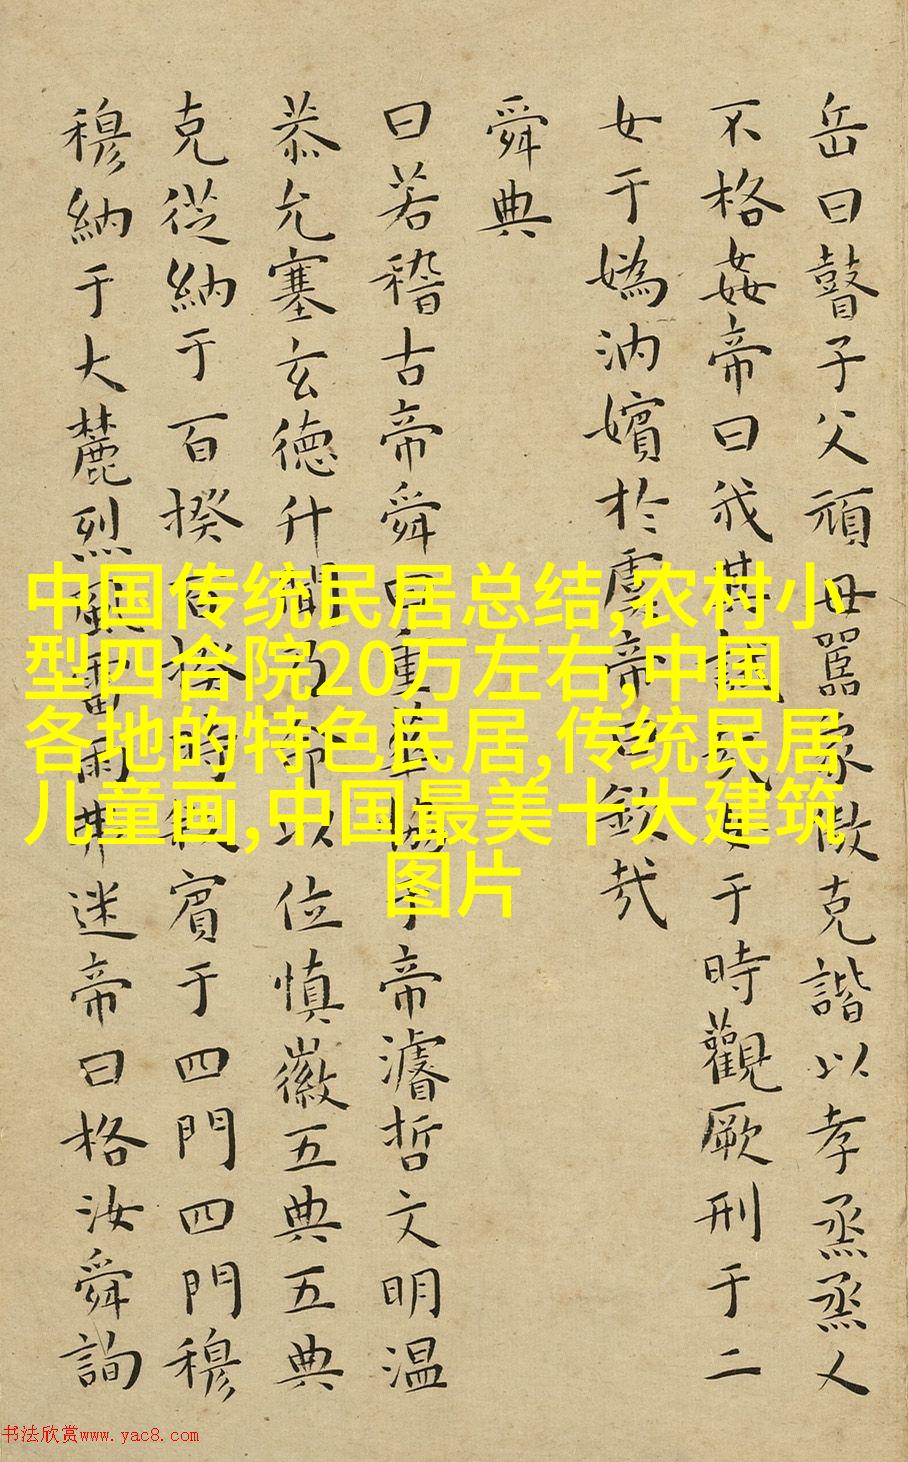 岳曰瞽子父頑母嚚象傲克諧以孝烝烝乂
不格姦帝曰我其試哉女于時觀厥刑于二
女于媯汭嬪於虞帝曰欽哉
舜典
曰若稽古帝舜曰重華協于帝濬哲文明温
恭允塞玄徳升聞乃命以位慎徽五典五典
克從納于百揆百揆時敘賓于四門四門穆
穆納于大麓烈風雷雨弗迷帝曰格汝舜詢
中国传统民居总结,农村小
型四合院20万左右,中国
各地的特色民居,传统民居
儿童画,中国最美十大建筑
图片
书法欣赏www.yac8.com